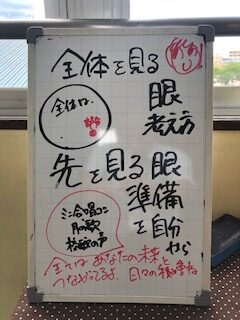 全体を見る
眼
考え方
全体は
先を見る眼
準備
を自分
から
ミニ合唱コン
月の歌
全てはあなたの未来と
つながってるよ。日々の積み重ね